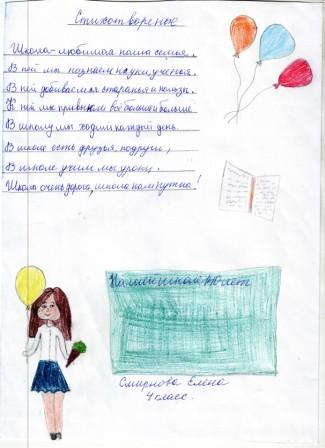 Стихотворенье
Школа-любимая наша семья.
В ней мы познаем науки, ученья.
В ней добиваемся старанья и
К ней мы привыкаем всё больше и больше
В школу мы ходим каждый день.
В школе есть друзья, подруги,
В школе учим мы уроки.
Школа очень дорога, школа нам нужна!
Нашей школе 40 лет
Смирнова Елена
4 класс.